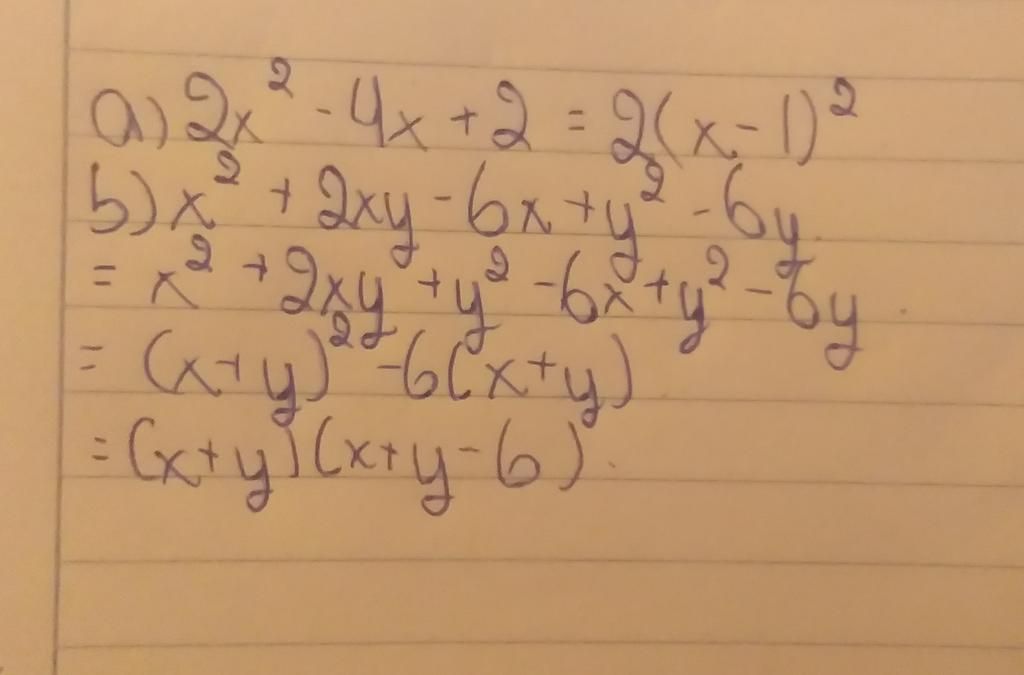 a) 2x² - 4x + 2 = 2(x - 1)²
b) x² + 2xy - 6x + y² - 6y
= x² + 2xy + y² - 6x + y² - 6y.
= (x + y)² - 6(x + y)
= (x + y)(x + y - 6).